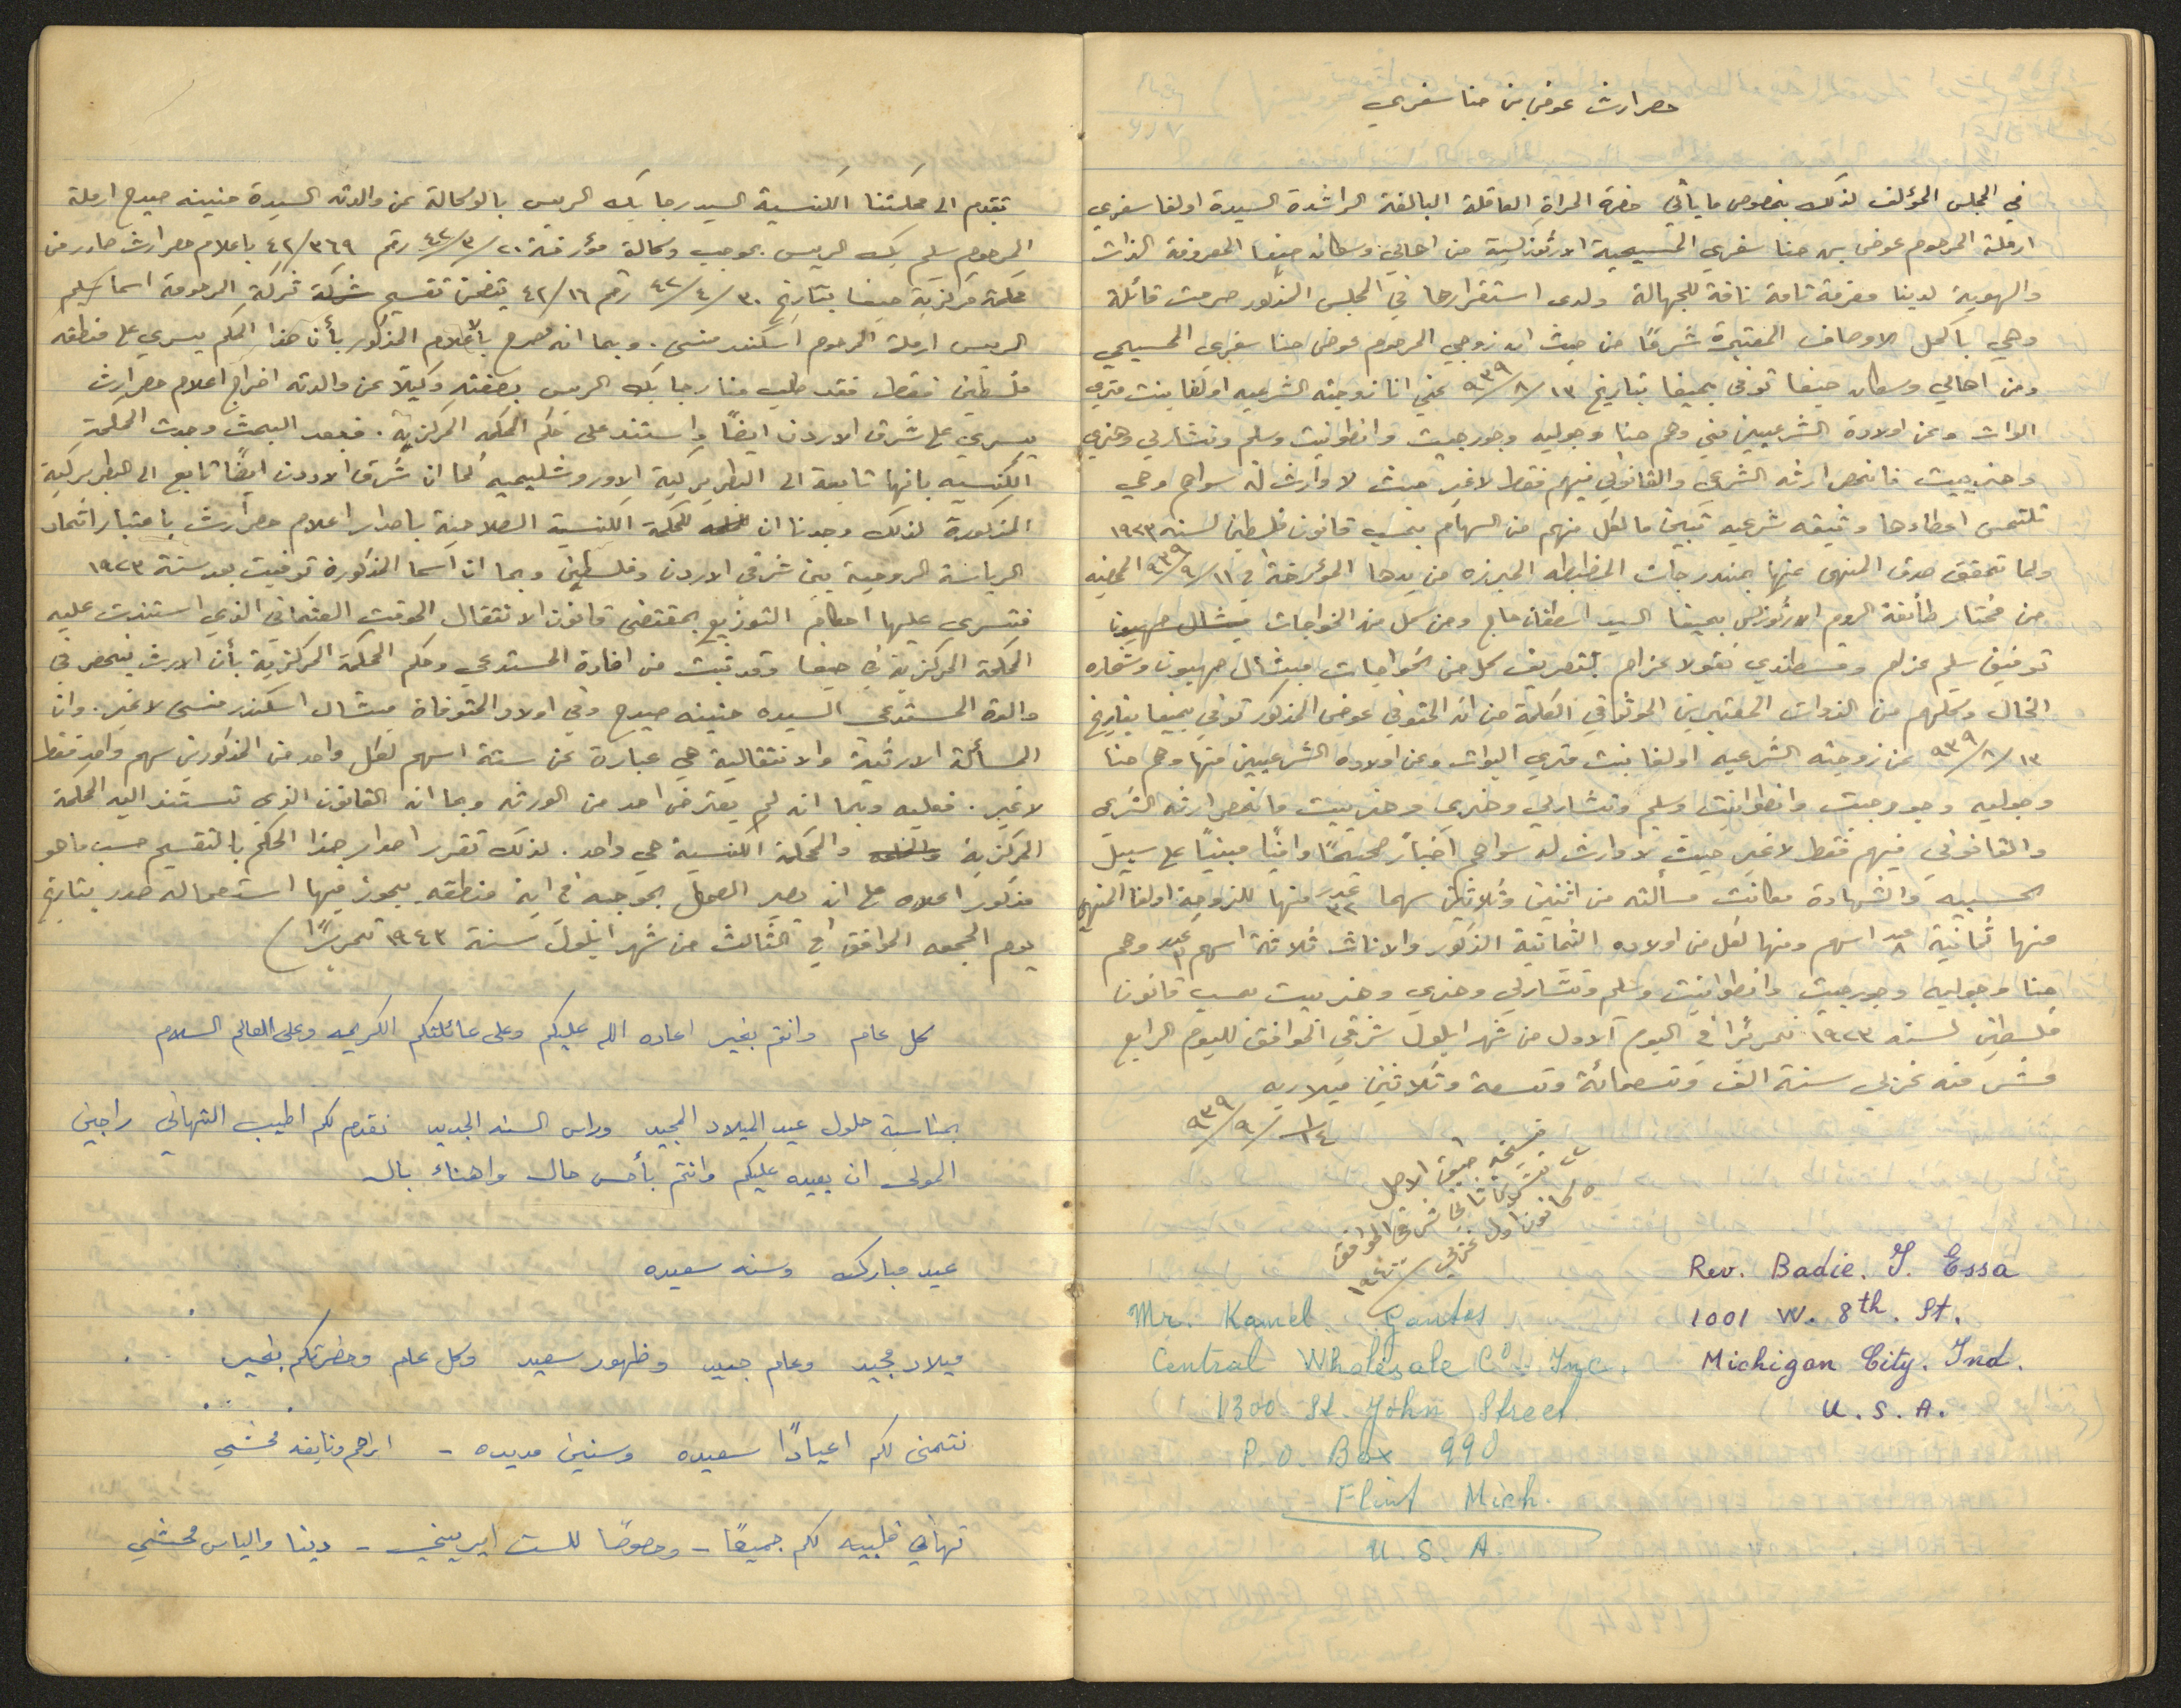 حصر ارث عوض بن حنا سفري
في المجلس المؤلف لذلك بخصوص ما يأتي حضرة المراة العاقلة البالغة الراشدة السيدة اولغا سفري
ارملة المرحوم عوض بن حنا سفري المسيحية الارثوذكسية من اهالي وسكان حيفا المعروفة الذات
والهوية لدينا معرفة تامة نافة للجهالة ولدى استقرارها في المجلس المذكور صرحت قائلة
وهي باكمل الاوصاف المعتبرة شرعًا من حيث ان زوجي المرحوم عوض حنا سفري المسيحي
ومن اهالي وسكان حيفا توفى بحيفا بتاريخ ١٣/٨/٩٣٩ عني انا زوجته الشرعيه اولغا بنت متري
الوات وعن اولاده الشرعيين مني وهم حنا وجوليه وجورجيت وانطوانيت وسليم وتشارلي وهنري
وهنرييت فانحصر ارثه الشرعي والقانوني فيهم فقط لاغير حيث لا وارث له سواهم وهي
تلتمس اعطاءها وثيقه شرعيه تبين ما لكل منهم من السهام بحسب قانون فلسطين لسنه ١٩٢٣
ولما تحقق صدق المنهى عنها بمندرجات المضبطه المبرزه من يدها المؤرخة في ١١/٩/٩٣٩ الممضيه
من مختار طائفة الروم الارثوذكس بحيفا السيد اسطفان حاج ومن كل من الخواجات ميشال صهيون
توفيق سليم عزام وقسطندي نقولا عزام بتعريف كل من الخواجات ميشال صهيون وشحاده
الخال وكلهم من الذوات المعتبرين الموثوقي الكلمة من ان المتوفي عوض المذكور توفي بحيفا بتاريخ
١٣/٨/٩٣٩ عن زوجته الشرعيه اولغا بنت متري الوات وعن اولاده الشرعيين منها وهم حنا
وجوليه وجورجيت وانطوانيت وسليم وتشارلي وهنري وهنرييت فانحصر ارثه الشرعي
والقانوني فيهم فقط لاغير حيث لا وارث له سواهم اخبارً صحيحًا وافيًا مبنيًا على سبيل
الحسبيه والشهادة فكانت مسألته من اثنين وثلاثين سهما عدد ٣٢ منها للزوجة اولغا المنهي
منها ثمانية عدد ٨ اسهم ومنها لكل من اولاده الثمانية الذكور والاناث ثلاثة اسهم عدد ٣ وهم
حنا وجوليه وجورجيت وانطوانيت وسليم وتشارلي وهنري وهنرييت بحسب قانون
فلسطين لسنه ١٩٢٣ تحريرًا في اليوم الاول من شهر ايلول شرقي الموافق لليوم الرابع
عشر منه غربي سنة الف وتسعمائة وتسعة وثلاثين ميلاديه
١/١٤/٩/٩٣٩
نسخة طبق الاصل
٢٢ تشرين ثاني شرقي الموافق
٥ كانون اول غربي ١٩٤٠
Rev. Badie. J. Essa
1001 W. 8th. St.
Michigan City. Ind.
U. S. A.
Mr. Kamel Gantos
Central Wholesale Co. Inc.
1300 St. John Street
P. O. Box 990
Flint Mich.
U. S. A.
تقدم الى محكمتنا الكنسية السيد رجا بك الريس بالوكالة عن والدته السيدة حنينه صيدح ارملة
المرحوم سليم بك الريس بموجب وكالة مؤرخة ٢٠/٣/٤٢ رقم ٤٢/٣٦٩ باعلام حصر ارث صادر من
محكمة مركزية حيفا بتاريخ ٣٠/٤/٤٢ رقم ٤٢/١٦ يتضمن تقسيم شركة تركة المرحومة اسما سليم
الريس ارملة المرحوم اسكندر منسى. وبما انه مصرح بالاعلام المذكور بأن هذا الحكم يسري على منطقة
فلسطين فقط فقد طلب منا رجا بك الريس بصفته وكيلا عن والدته اخراج اعلام حصر ارث
يسري على شرق الاردن ايضًا واستند على حكم المحكمه المركزية. فبعد البحث وجدت المحكمة
الكنسيه بانها تابعة الى البطريركية الاورشليميه كما ان شرق الاردن ايضًا تابع الى البطريركية
المذكورة لذلك وجدنا ان للمحكمة الكنسية الصلاحية باصدار اعلام حصر ارث باعتبار اتحاد
الرياسة الروحية بين شرقي الاردن وفلسطين وبما ان اسما المذكورة توفيت بعد سنة ١٩٢٣
فتسري عليها احكام التوزيع بمقتضى قانون الانتقال الموقت العثماني الذي استندت عليه
المحكمة المركزية في حيفا وقد ثبت من افادة المستدعي وحكم المحكمة المركزية بأن الارث ينحصر في
والدة المستدعي السيده حنينه صيدح وفي اولاد المتوفاة ميشال اسكندر منسى لاغير. وان
المسألة الارثية والانتقالية هي عبارة عن ستة اسهم لكل واحد من المذكورين سهم واحد فقط
لاغير. فعليه وبما انه لم يعترض احد من الورثه وبما ان القانون الذي تستند اليه المحكمة
المركزية والمحكمة الكنسية هي واحد. لذلك تقرر اصدار هذا الحكم بالتقسيم حسب ما هو
مذكور اعلاه على ان يصير العمل بموجبه في اية منطقه يجوز فيها استعماله صدر بتاريخ
يوم الجمعه الموافق في الثالث من شهر ايلول سنة ١٩٤٣ تحريرًا
كل عام وانتم بخير اعاده الله عليكم وعلى عائلتكم الكريمه وعلى العالم السلام
بمناسبة حلول عيد الميلاد المجيد وراس السنه الجديد نقدم لكم اطيب التهاني راجين
المولى ان يعيده عليكم وانتم بأحسن حال واهناء بال
عيد مبارك وسنه سعيده
ميلاد مجيد وعام جديد وظهور سعيد وكل عام وحضرتكم بخير
نتمنى لكم اعيادًا سعيده وسنين مديده - ابراهيم ونايفه محشي
تهاني قلبيه لكم جميعًا - وخصوصًا للست ايريني - دينا والياس محشي